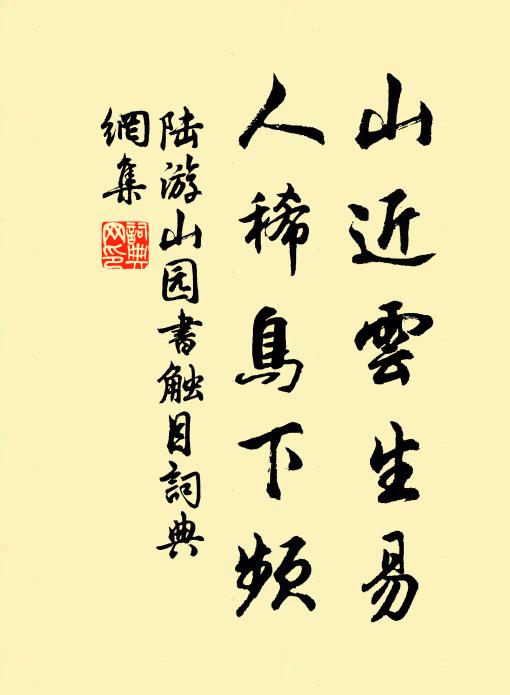 山近雲生易
人稀鳥下頻
陆游山园書触目詞典
網集
詞典网印